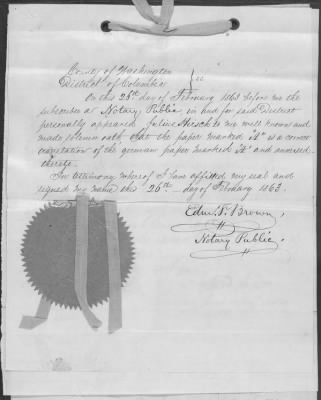 County of Washington
District of Columbia } ss
On this 26th day of February 1863 before me the
subscriber a Notary Public in and for said District
personally appeared Julius Hirsch to me well known and
made solemn oath that the paper marked is a correct
translation of the german paper marked and annexed
thereto.
In testimony whereof I have affixed my seal and
signed my name this 26th day of February 1863.
Edw. F. Brown,
Notary Public.